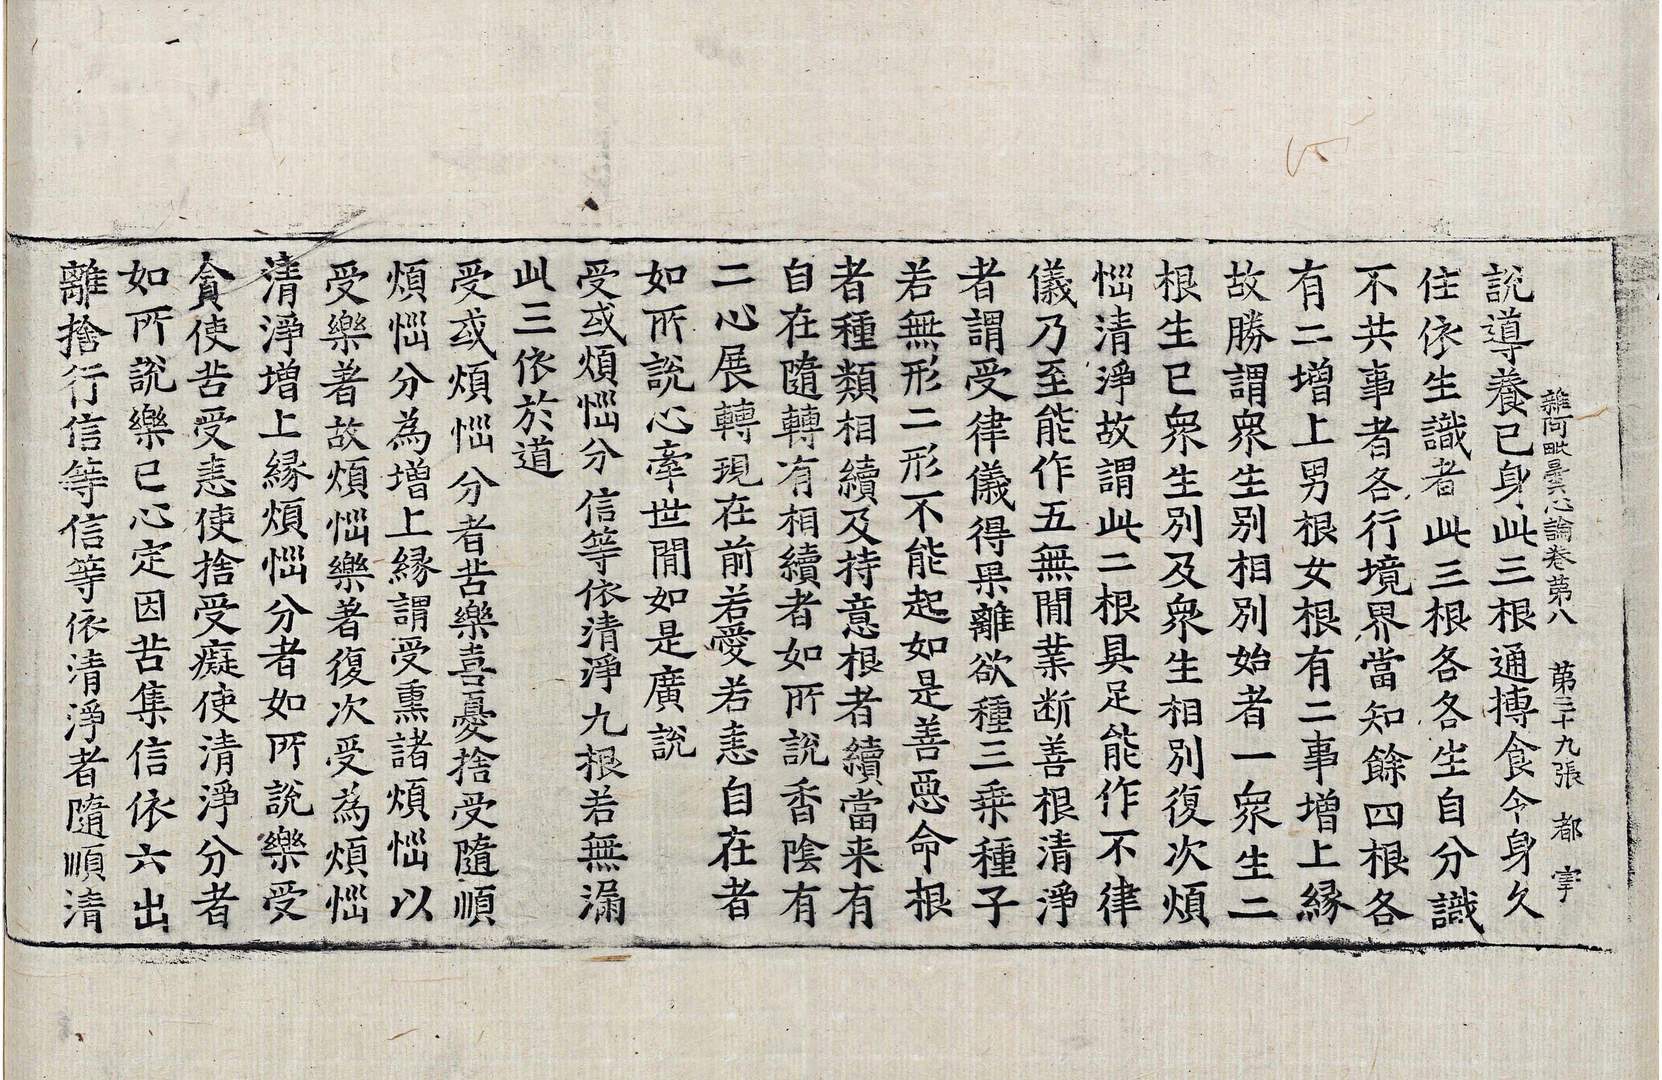 雜阿毗曇心論卷第八　第三十九張　都宰
說導養已身此三根通摶食今身久
住依生識者此三根各各生自分識
不共事者各行境界當知餘四根各
有二增上男根女根有二事增上緣
故勝謂衆生別相別始者一衆生二
根生已衆生別及衆生相別復次煩
惱清淨故謂此二根具足能作不律
儀乃至能作五無間業断善根清淨
者謂受律儀得果離欲種三乘種子
若無形二形不能起如是善惡命根
者種類相續及持意根者續當来有
自在隨轉有相續者如所說香陰有
二心展轉現在前若愛若恚自在者
如所說心牽世間如是廣說
受或煩惱分信等依清淨九根若無漏
此三依於道
受或煩惱分者苦樂喜憂捨受隨順
煩惱分為增上緣謂受熏諸煩惱以
受樂著故煩惱樂著復次受為煩惱
清淨增上緣煩惱分者如所說樂受
貪使苦受恚使捨受癡使清淨分者
如所說樂已心定因苦集信依六出
離捨行信等信等依清淨者隨順清